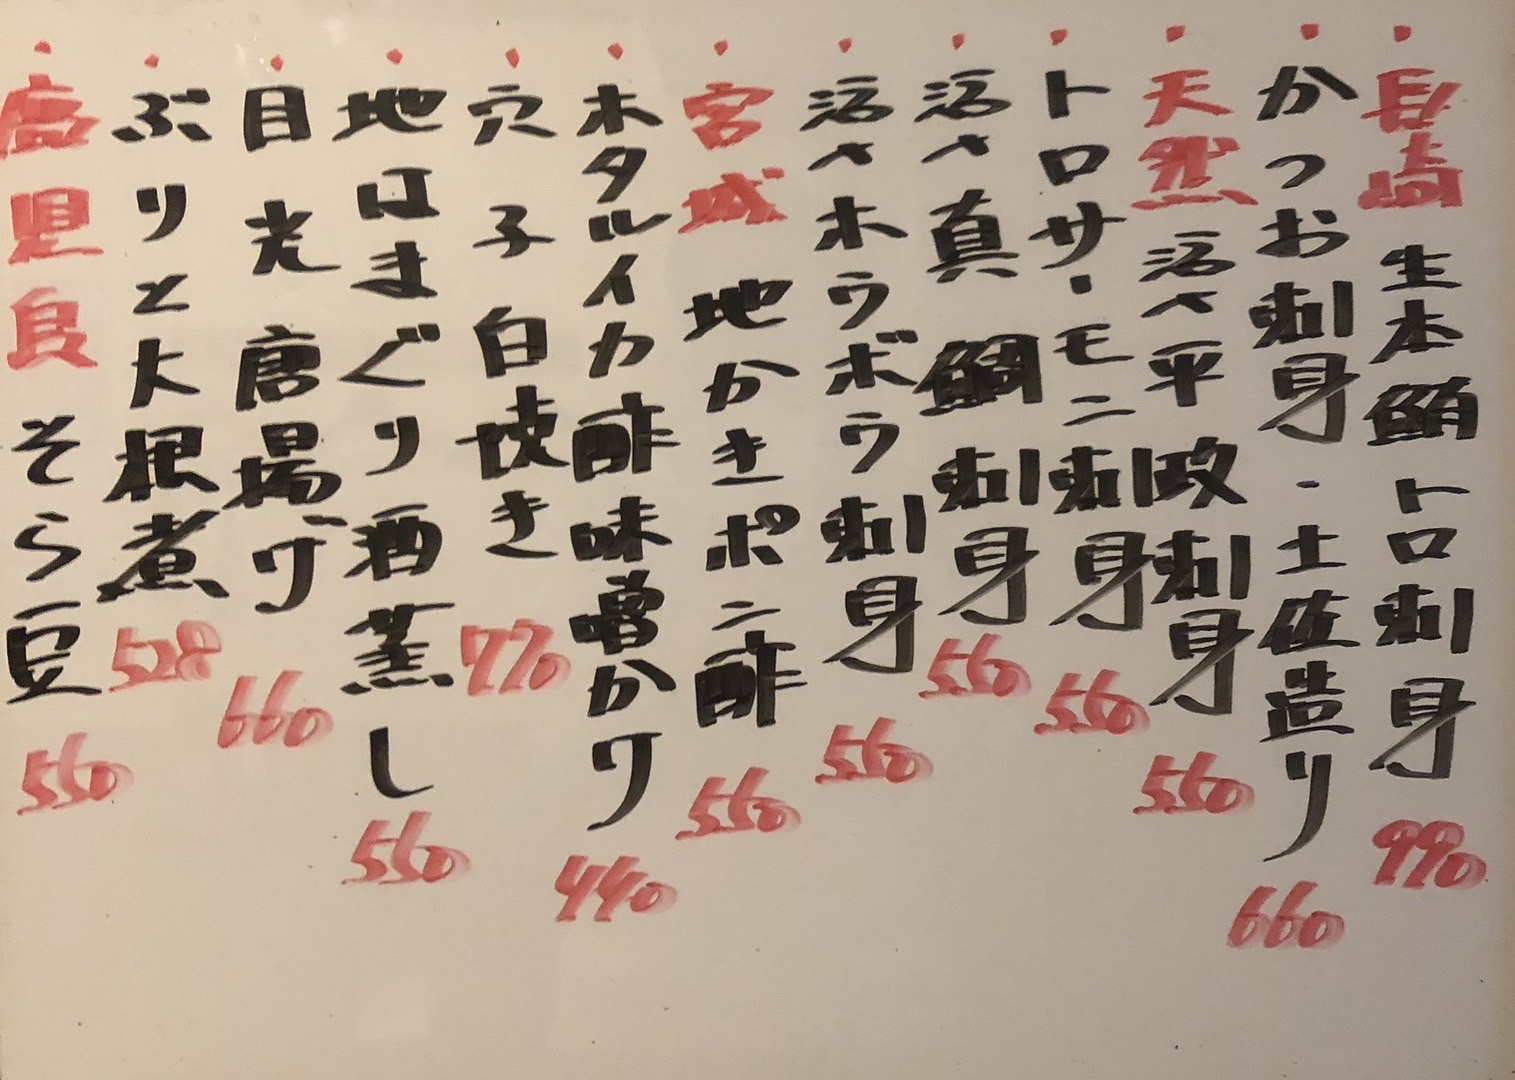 ・長崎 生本鮪トロ刺身 990
・かつお刺身・土佐造り 660
・天然 活〆平政刺身 550
・トロサーモン刺身 550
・活〆真鯛刺身 550
・活〆ホウボウ刺身 550
・宮城 地かきポン酢 550
・ホタルイカ酢味噌かけ 440
・穴子白焼き 770
・地はまぐり酒蒸し 550
・目光唐揚げ 660
・ぶりと大根煮 528
・鹿児島 そら豆 550